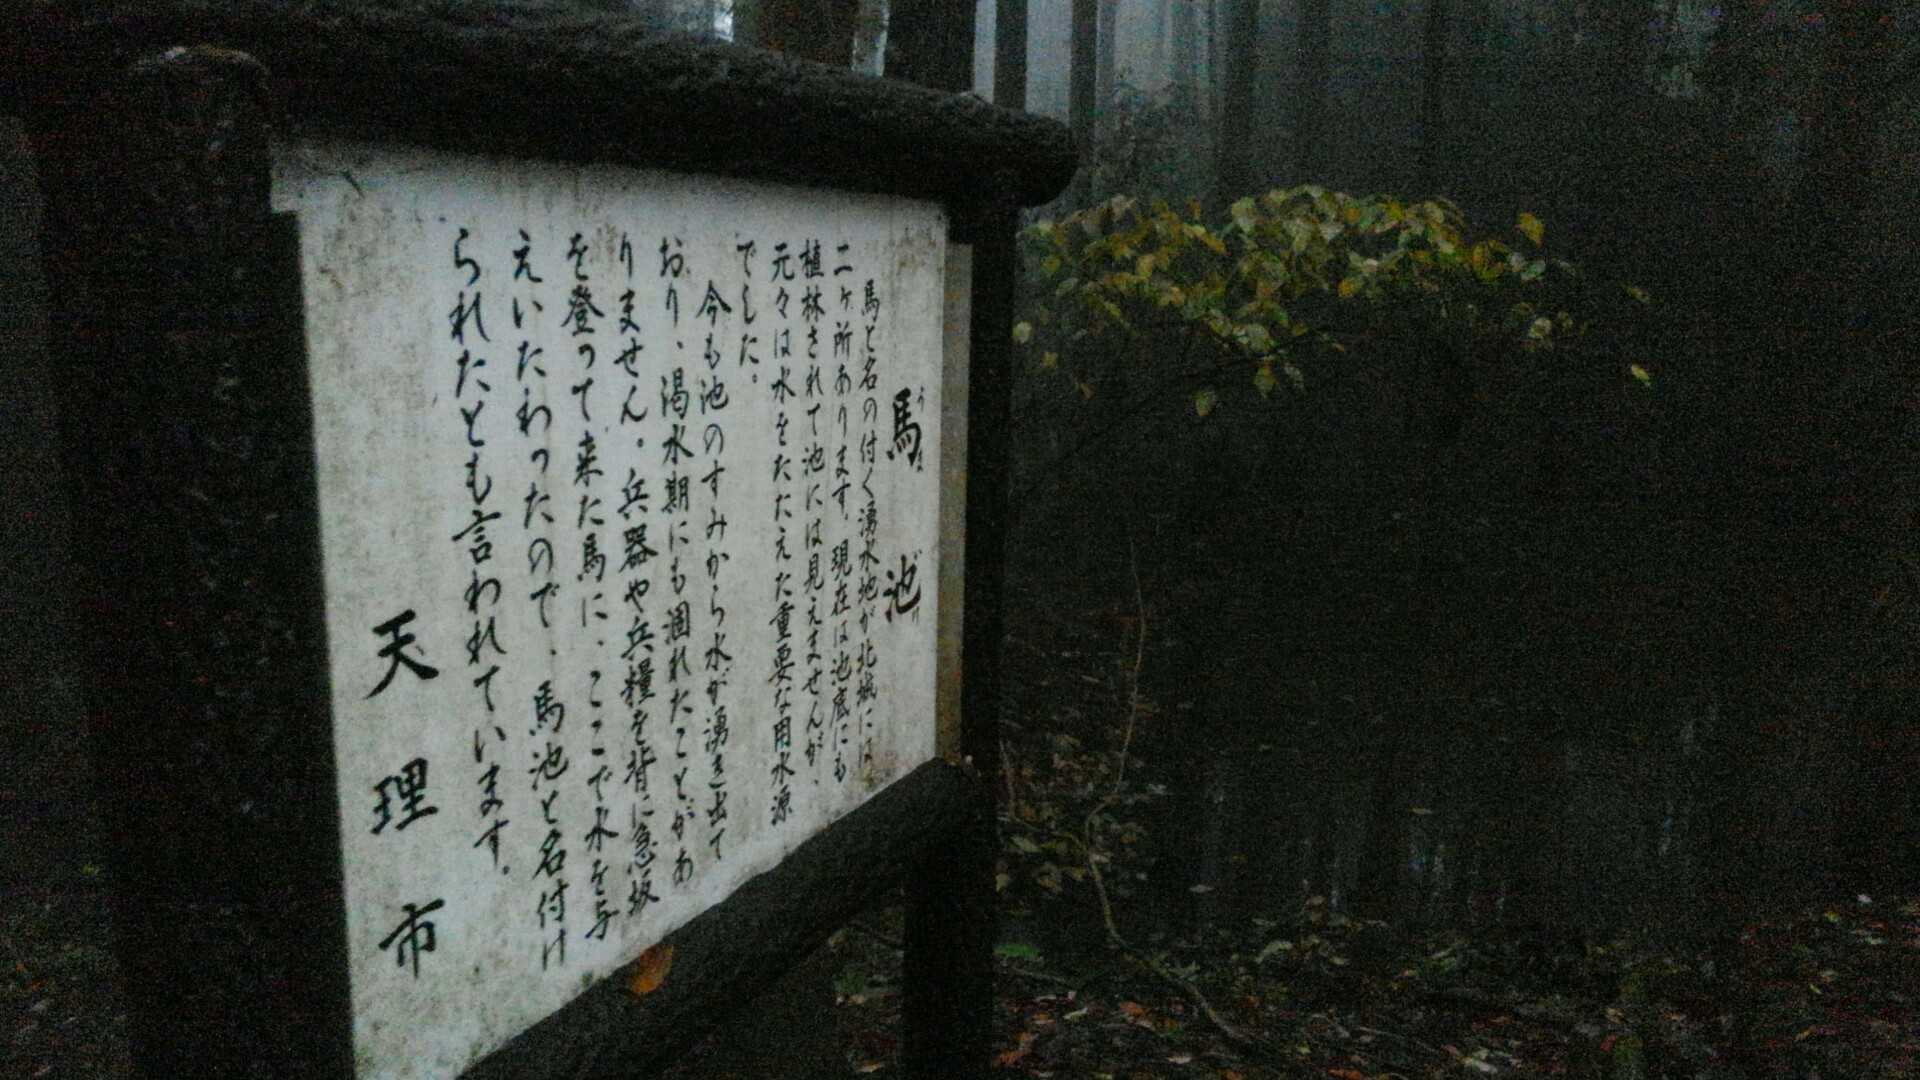 馬池
うまいけ
馬と名の付く湧水地が北城には
二ヶ所あります。現在は池底にも
植林されて池には見えませんが、
元々は水をたたえた重要な用水源
でした。
今も池のすみから水が湧き出て
おり、渇水期にも涸れたことがあ
りません。兵器や兵糧を背に急坂
を登って来た馬に、ここで水を与
えいたわったので、馬池と名付け
られたとも言われています。
天理市